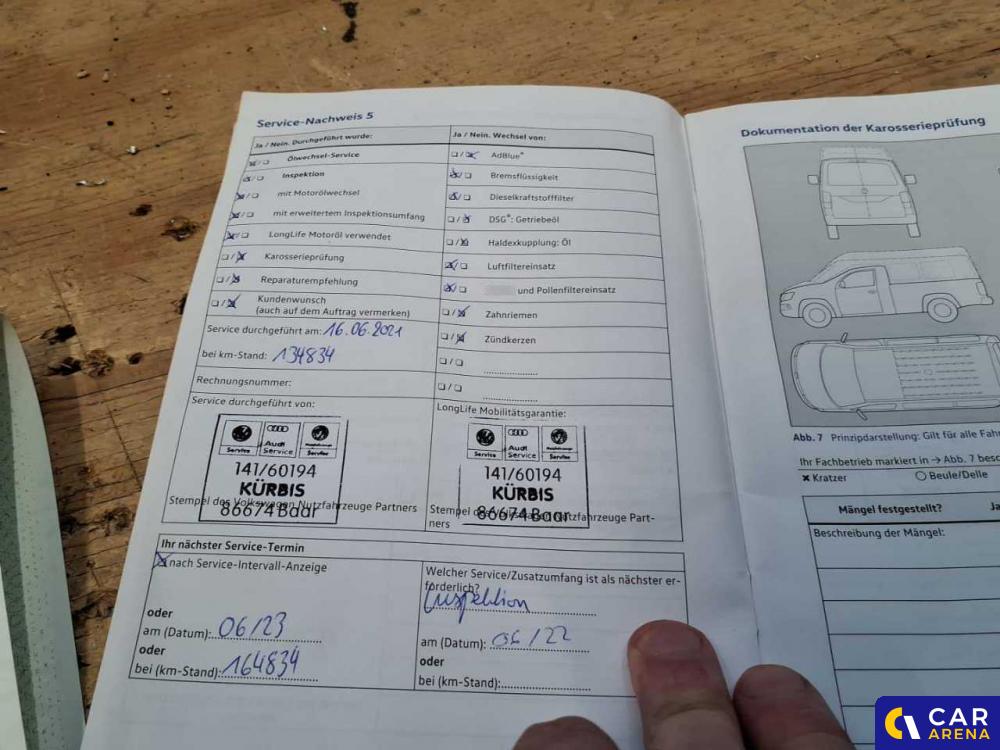 Service-Nachweis 5
Ja / Nein. Durchgeführt wurde:
Ölwechsel-Service
Inspektion
mit Motorölwechsel
mit erweitertem Inspektionsumfang
LongLife Motoröl verwendet
Karosserieprüfung
Reparaturempfehlung
Kundenwunsch
(auch auf dem Auftrag vermerken)
Service durchgeführt am: 16.06.2021
bei km-Stand: 134834
Rechnungsnummer:
Service durchgeführt von:
Service
Audi
Service
Service
141/60194
KÜRBIS
86674 Baar
Stempel des Volkswagen Nutzfahrzeuge Partners
Ja / Nein. Wechsel von:
AdBlue®
Bremsflüssigkeit
Dieselkraftstofffilter
DSG®: Getriebeöl
Haldexkupplung: Öl
Luftfiltereinsatz
und Pollenfiltereinsatz
Zahnriemen
Zündkerzen
LongLife Mobilitätsgarantie:
Service
Audi
Service
Service
141/60194
KÜRBIS
86674 Baar
Stempel des Volkswagen Nutzfahrzeuge Part-
ners
Ihr nächster Service-Termin
nach Service-Intervall-Anzeige
oder
am (Datum): 06/23
oder
bei (km-Stand): 164834
Welcher Service/Zusatzumfang ist als nächster er-
forderlich?
Inspektion
am (Datum): 06/22
oder
bei (km-Stand):
Dokumentation der Karosserieprüfung
Abb. 7 Prinzipdarstellung: Gilt für alle Fahr
Ihr Fachbetrieb markiert in → Abb. 7 besc
× Kratzer ○ Beule/Delle
Mängel festgestellt? Ja
Beschreibung der Mängel:
CAR
ARENA